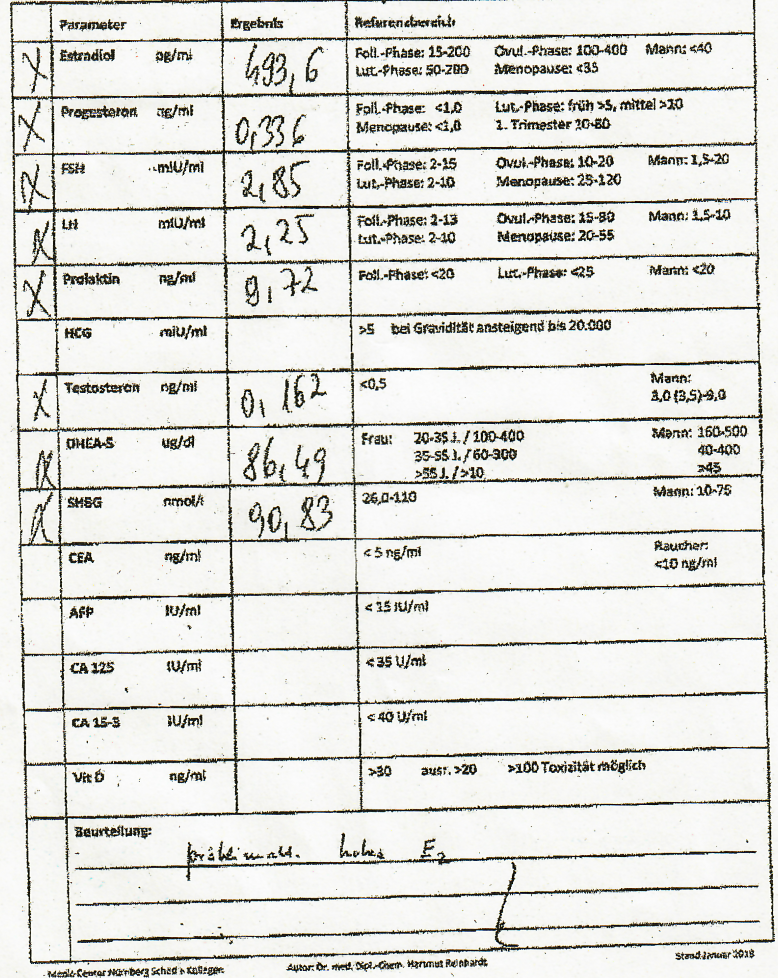 Parameter Ergebnis Referenzbereich
X Estradiol pg/ml 493,6 Foll.-Phase: 15-200 Ovul.-Phase: 100-400 Mann: <40
Lut.-Phase: 50-280 Menopause: <35
X Progesteron ng/ml 0,336 Foll.-Phase: <1,0 Lut.-Phase: früh >5, mittel >10
Menopause: <1,0 1. Trimester 10-80
X FSH mIU/ml 2,85 Foll.-Phase: 2-15 Ovul.-Phase: 10-20 Mann: 1,5-20
Lut.-Phase: 2-10 Menopause: 25-120
X LH mIU/ml 2,25 Foll.-Phase: 2-13 Ovul.-Phase: 15-80 Mann: 1,5-10
Lut.-Phase: 2-10 Menopause: 20-55
X Prolaktin ng/ml 9,72 Foll.-Phase: <20 Lut.-Phase: <25 Mann: <20
HCG mIU/ml >5 bei Gravidität ansteigend bis 20.000
X Testosteron ng/ml 0,162 <0,5 Mann:
3,0 (3,5)-9,0
X DHEA-S ug/dl 86,49 Frau: 20-35 J. / 100-400 Mann: 160-500
35-55 J. / 60-300 40-400
>55 J. / >10 >45
X SHBG nmol/l 90,83 26,0-110 Mann: 10-75
CEA ng/ml < 5 ng/ml Raucher:
<10 ng/ml
AFP IU/ml < 15 IU/ml
CA 125 IU/ml < 35 U/ml
CA 15-3 IU/ml < 40 U/ml
Vit D ng/ml >30 ausr. >20 >100 Toxizität möglich
Beurteilung:
hohes E2
Autor: Dr. med. Dipl.-Chem. Hartmut Reinhardt Stand Januar 2018